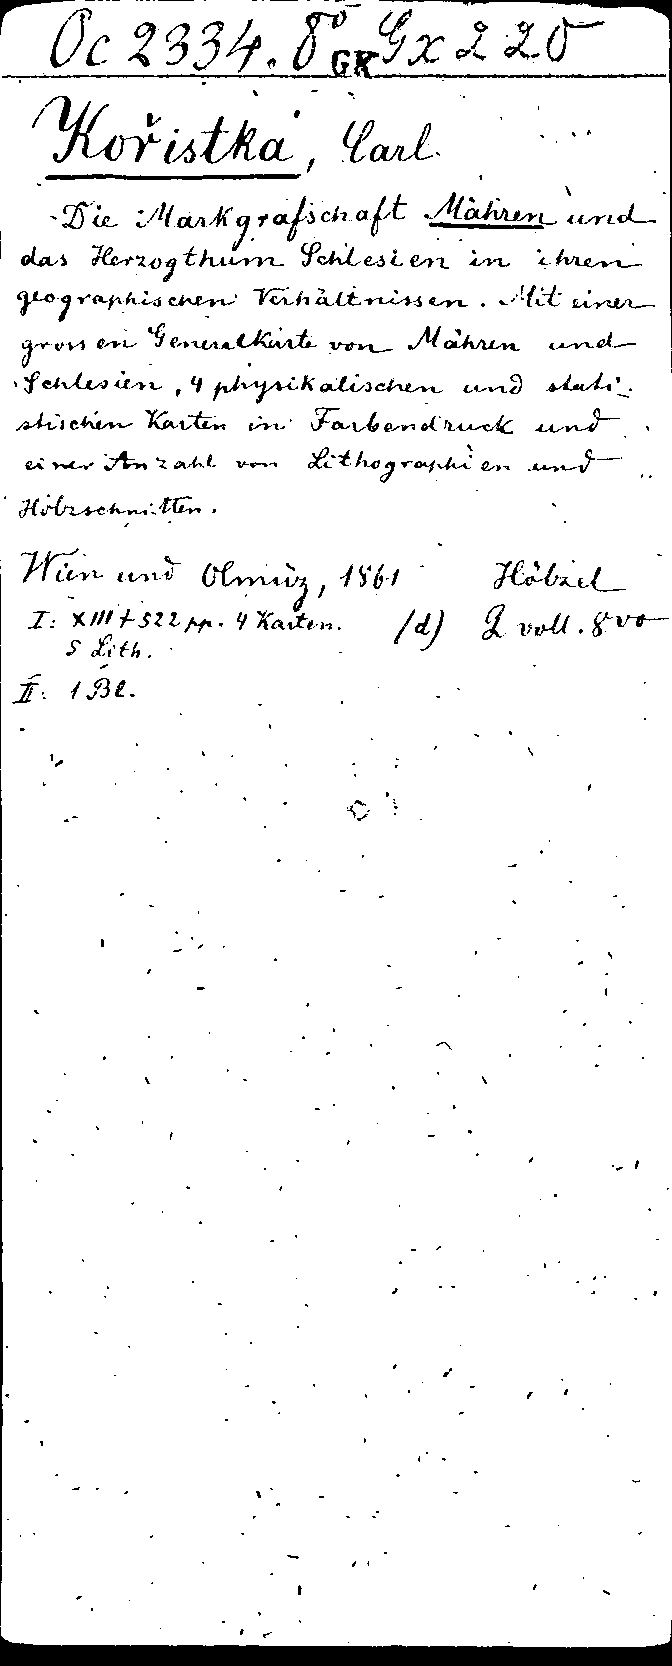 Oc 2334. 8º GK Gx 220
Kořistka, Carl.
Die Markgrafschaft Mähren und
das Herzogthum Schlesien in ihren
geographischen Verhältnissen. Mit einer
grossen Generalkarte von Mähren und
Schlesien, 4 physikalischen und stati-
stischen Karten in Farbendruck und
einer Anzahl von Lithographien und
Holzschnitten.
Wien und Olmüz, 1861 Hölzel
I: XIII + 522 pp. 4 Karten. (d) 2 voll. 8vo
5 Lith.
II: 1 Bl.